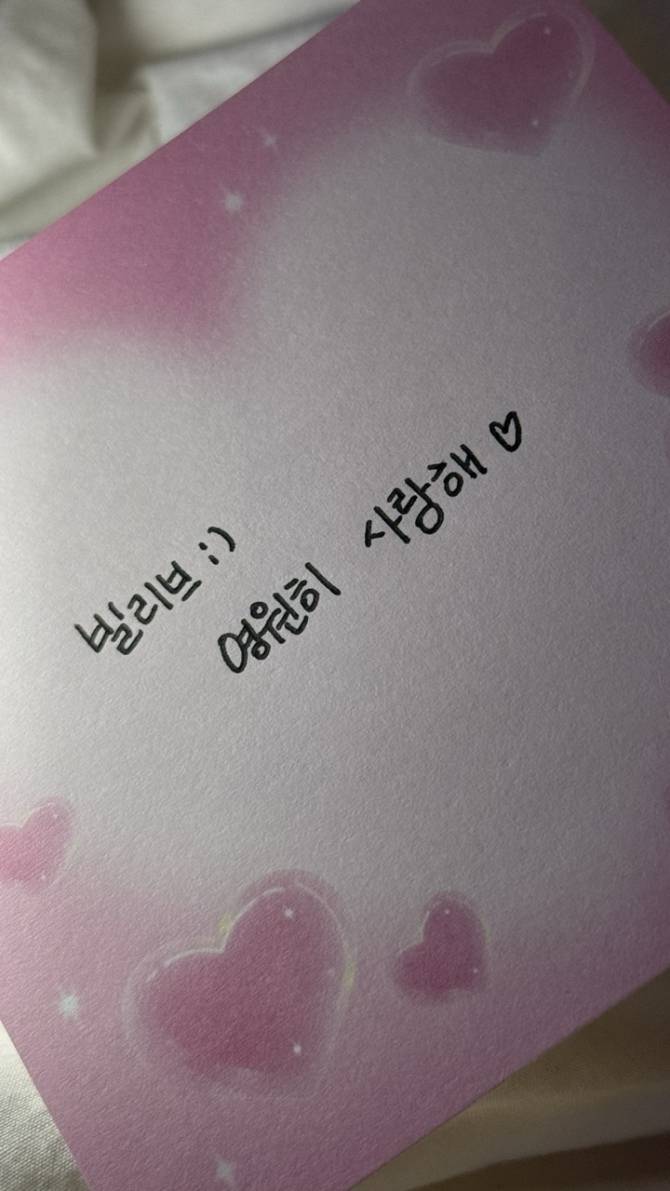 빌리브 :)
영원히 사랑해 ♡